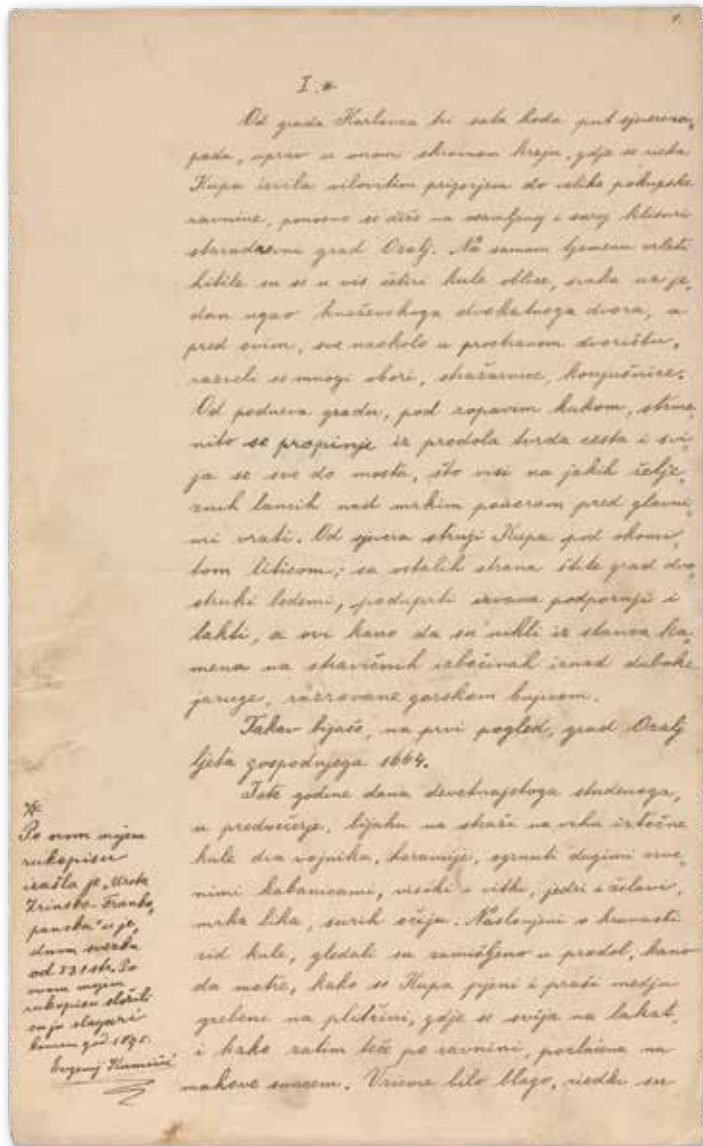 1.
I.*
Od grada Karlovca tri sata hoda put sjeveroza-
pada, uprav u onom skromom kraju, gdje se rieka
Kupa izvila vilovitim prigorjem do velike pokupske
ravnine, ponosno se diže na osamljenoj i suroj klisuri
staradrevni grad Ozalj. Na samom tjemenu vrleti
hitile su se u vis četiri kule oblice, svaka uz je-
dan ugao kneževskoga dvokatnoga dvora, a
pred ovim, sve naokolo u prostranom dvorištu,
razreli se mnogi obori, stražarnice, konjušnice.
Od podneva gradu, pod ropavim kukom, strme-
nito se propinje iz prodola tvrda cesta i svi-
ja se sve do mosta, što visi na jakih želje-
znih lancih nad mrkim ponorom pred glavni-
mi vrati. Od sjevera struji Kupa pod okomi-
tom liticom; sa ostalih strana štite grad dvo-
struki bedemi, poduprti izvana podpornji i
lakti, a ovi kano da su nikli iz stanca ka-
mena na stravičnih izbočinah iznad duboke
jaruge, razrovane gorskom bujicom.
Takav bijaše, na prvi pogled, grad Ozalj
ljeta gospodnjega 1664.
Iste godine dana devetnajstoga studenoga,
u predvečerje, bijahu na straži na vrhu iztočne
kule dva vojnika, haramije, ogrnuti dugimi crve-
nimi kabanicami, visoki i vitki, jedri i čelavi,
mrka lika, surih očiju. Naslonjeni o krunasti
zid kule, gledali su zamišljeno u prodol, kano
da motre, kako se Kupa pjeni i praši medju
grebeni na plitčini, gdje se svija na lakat,
i kako zatim teče po ravnini, pozlaćena na
mahove suncem. Vrieme bilo blago, riedki su
*
Po ovom mojem
rukopisu
izašla je „Urota
Zrinsko-Franko-
panska" u je-
dnom svezku
od 531 str. Po
ovom mojem
rukopisu složili
su ju slagari
koncem god. 1895.
Evgenij Kumičić